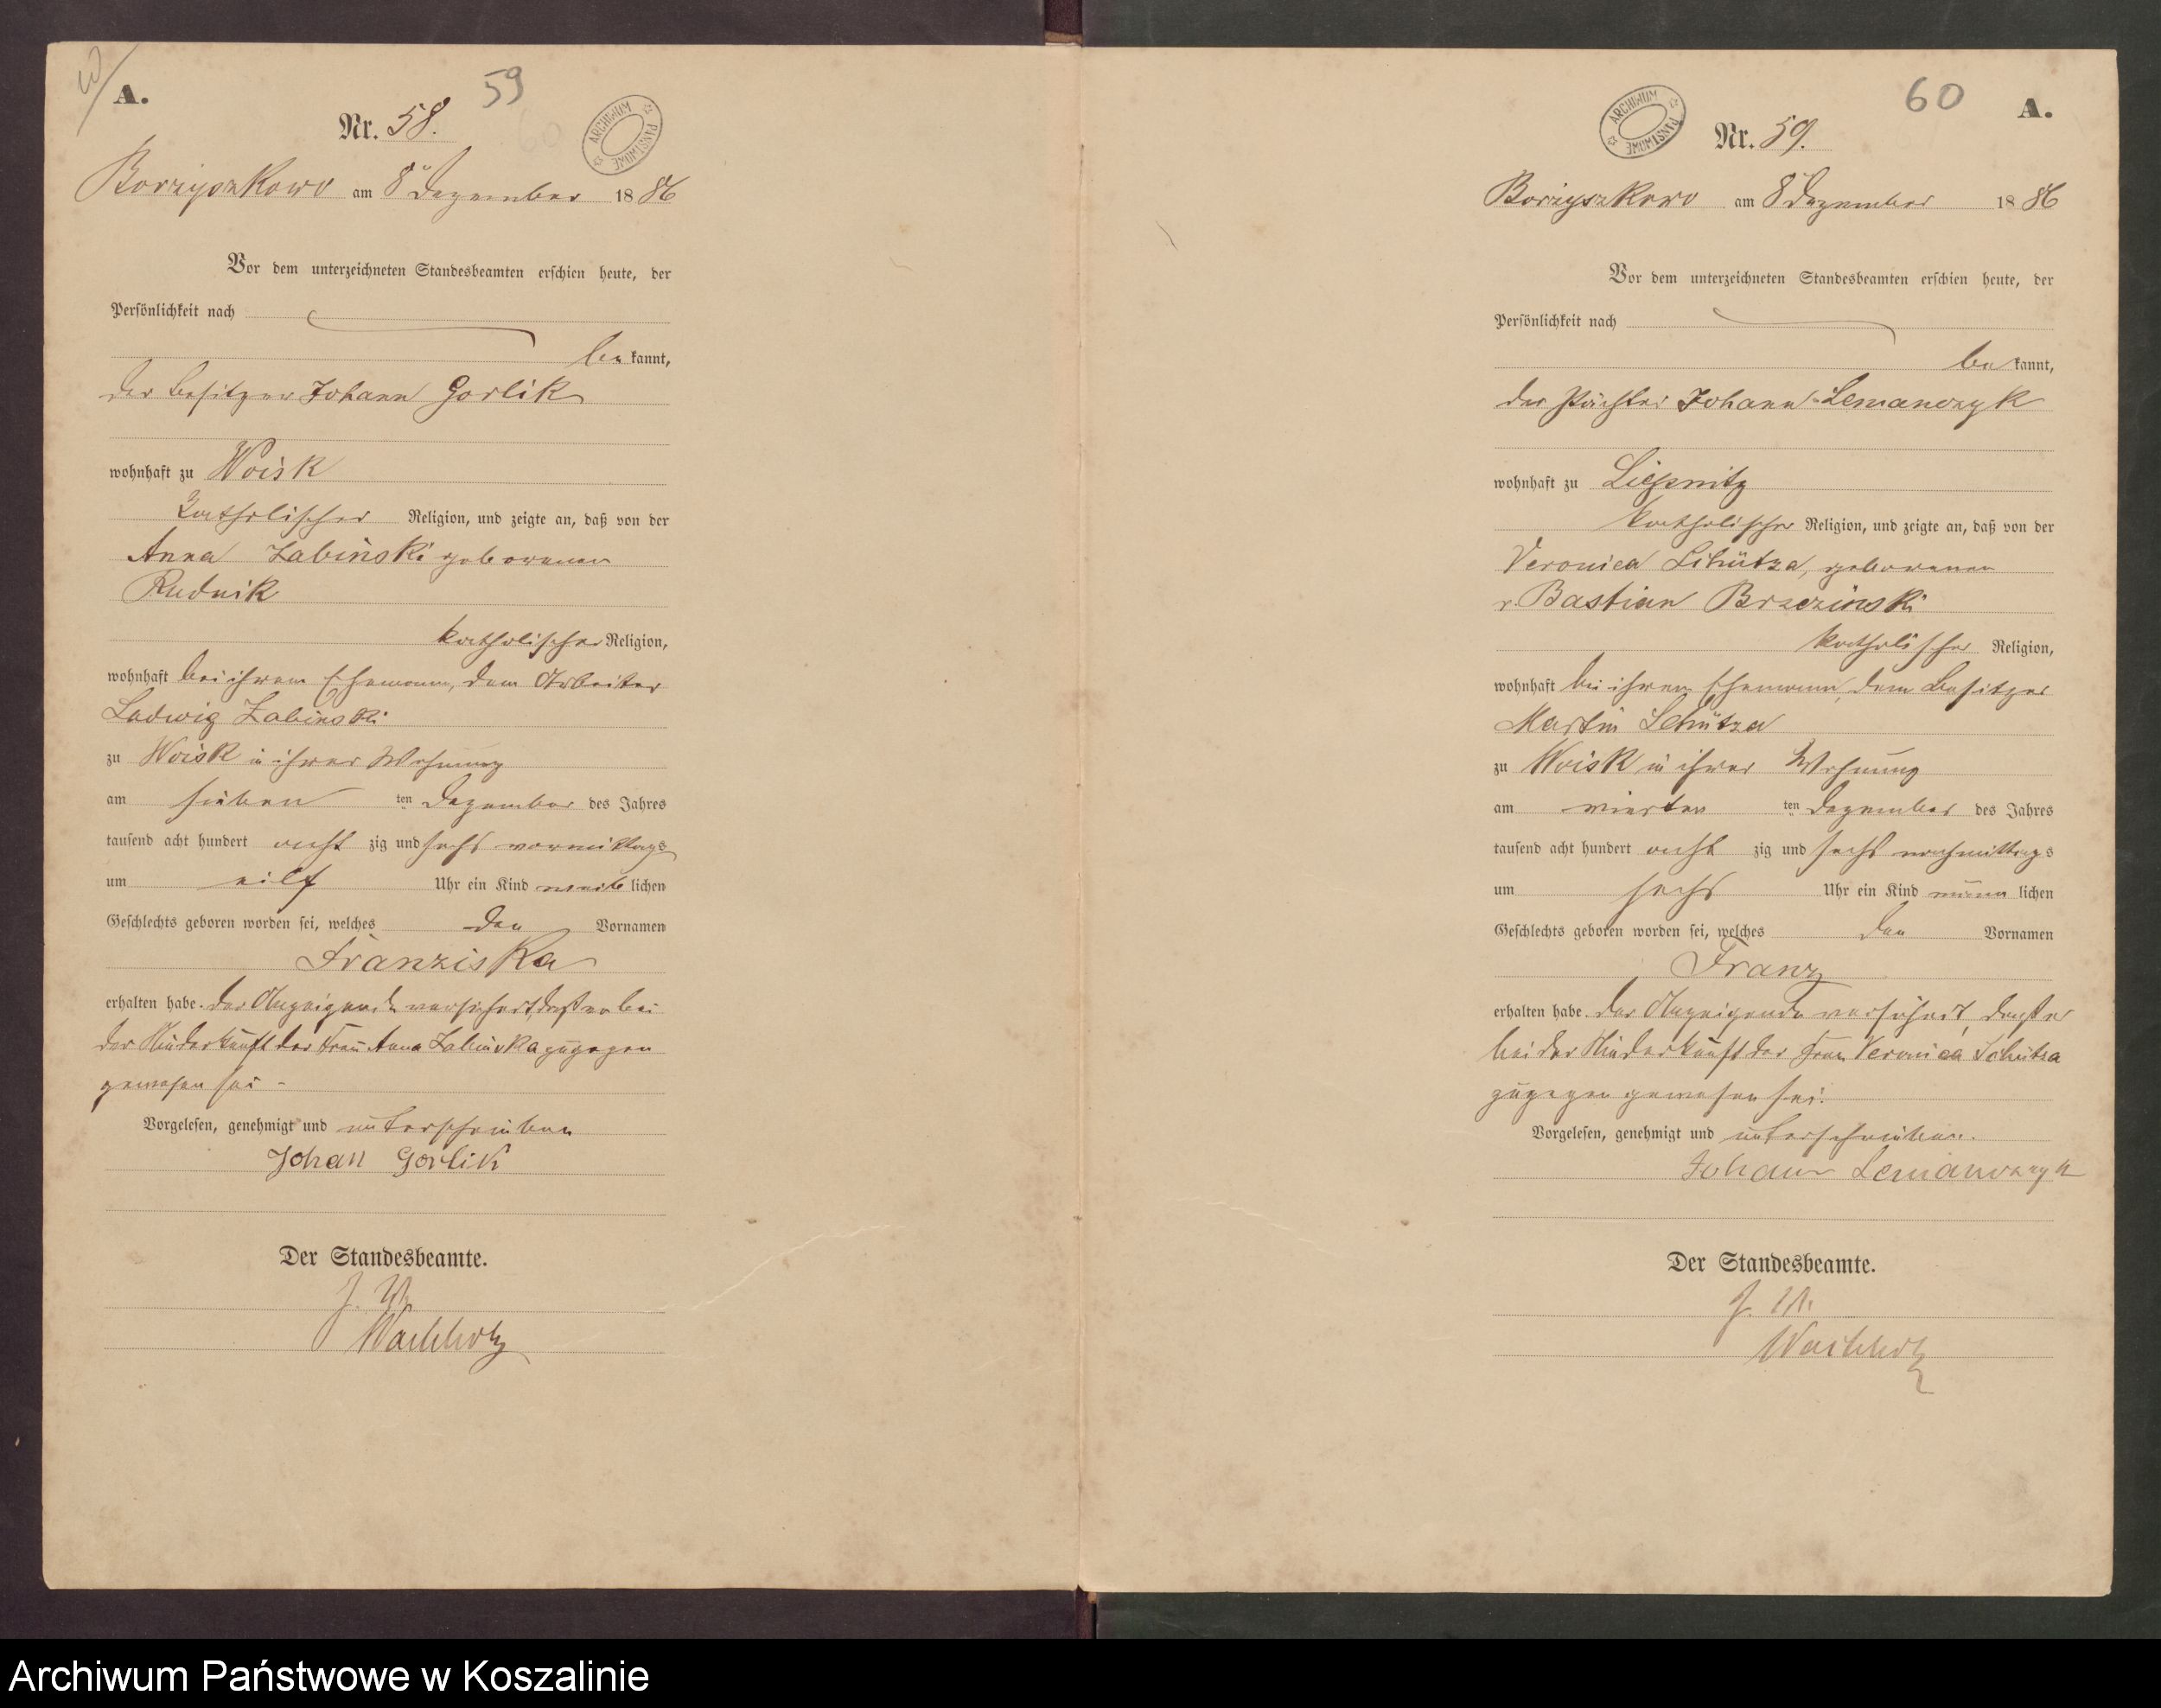 A.
59
Nr. 58.
ARCHIWUM PAŃSTWOWE
Borzyszkowo am 8 Dezember 1886
Vor dem unterzeichneten Standesbeamten erschien heute, der
Persönlichkeit nach
be kannt,
der Besitzer Johann Gorlik
wohnhaft zu Woisk
katholischer Religion, und zeigte an, daß von der
Anna Zabinski geborenen
Rudnik
katholischer Religion,
wohnhaft bei ihrem Ehemann, dem Arbeiter
Ludwig Zabinski
zu Woisk in ihrer Wohnung
am sieben ten Dezember des Jahres
tausend acht hundert acht zig und sechs vormittags
um eilf Uhr ein Kind weib lichen
Geschlechts geboren worden sei, welches den Vornamen
Franziska
erhalten habe. Der Anzeigende versichert, daß er bei
der Niederkunft der Frau Anna Zabinska zugegen
gewesen sei -
Vorgelesen, genehmigt und unterschrieben
Johan Gorlik
Der Standesbeamte.
J. V.
Wachholz
60
A.
ARCHIWUM PAŃSTWOWE
Nr. 59.
Borzyszkowo am 8 Dezember 1886
Vor dem unterzeichneten Standesbeamten erschien heute, der
Persönlichkeit nach
be kannt,
der Pächter Johann Lemanczyk
wohnhaft zu Liepnitz
katholischer Religion, und zeigte an, daß von der
Veronica Schütza, geborenen
v. Bastian Brzezinski
katholischer Religion,
wohnhaft bei ihrem Ehemann, dem Besitzer
Martin Schütza
zu Woisk in ihrer Wohnung
am vierten ten Dezember des Jahres
tausend acht hundert acht zig und sechs nachmittags
um sechs Uhr ein Kind männ lichen
Geschlechts geboren worden sei, welches den Vornamen
Franz
erhalten habe. Der Anzeigende versichert, daß er
bei der Niederkunft der Frau Veronica Schütza
zugegen gewesen sei.
Vorgelesen, genehmigt und unterschrieben.
Johann Lemanczyk
Der Standesbeamte.
J. V.
Wachholz
Archiwum Państwowe w Koszalinie